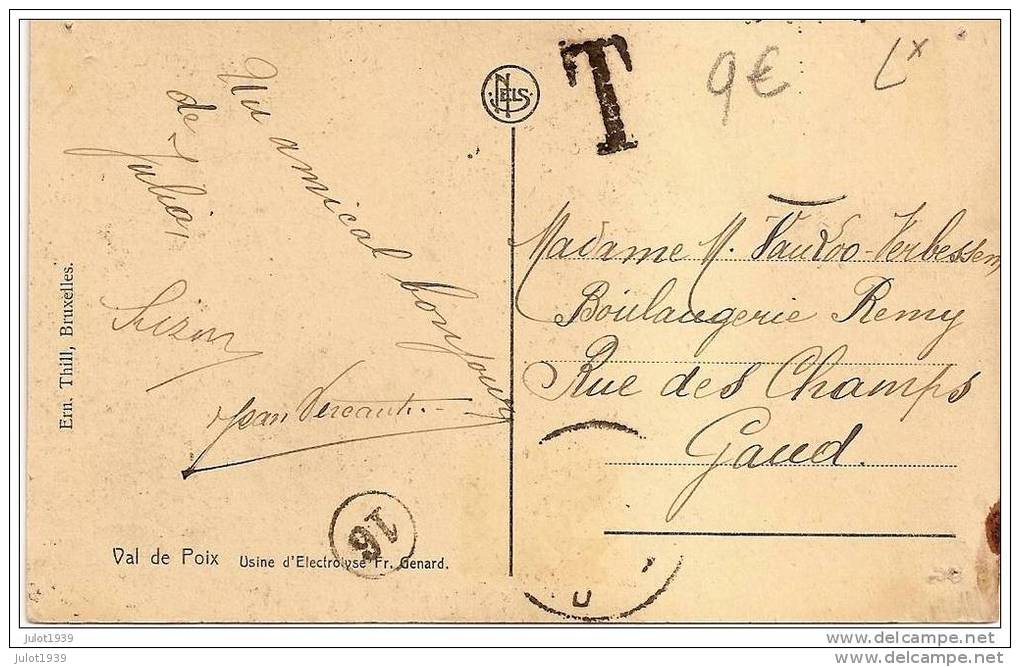 Un amical bonjour
de Julia,
Suzon
Jean Vercaut
Ern. Thill, Bruxelles.
NELS
T
9€
Madame M. Vaudoo-Verbessem
Boulangerie Remy
Rue des Champs
Gand.
16
Val de Poix Usine d'Electrolyse Fr. Genard.
julot1939
julot1939
www.delcampe.net
www.delcampe.net